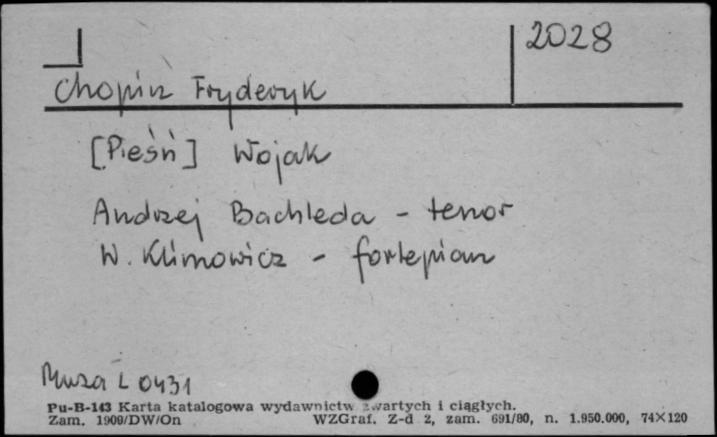 2028
Chopin Fryderyk
[Pieśń] Wojak
Andrzej Bachleda - tenor
W. Klimowicz - fortepian
Muza L 0431
Pu-B-143 Karta katalogowa wydawnictw zwartych i ciągłych.
Zam. 1909/DW/On WZGraf. Z-d 2, zam. 691/80, n. 1.950.000, 74×120